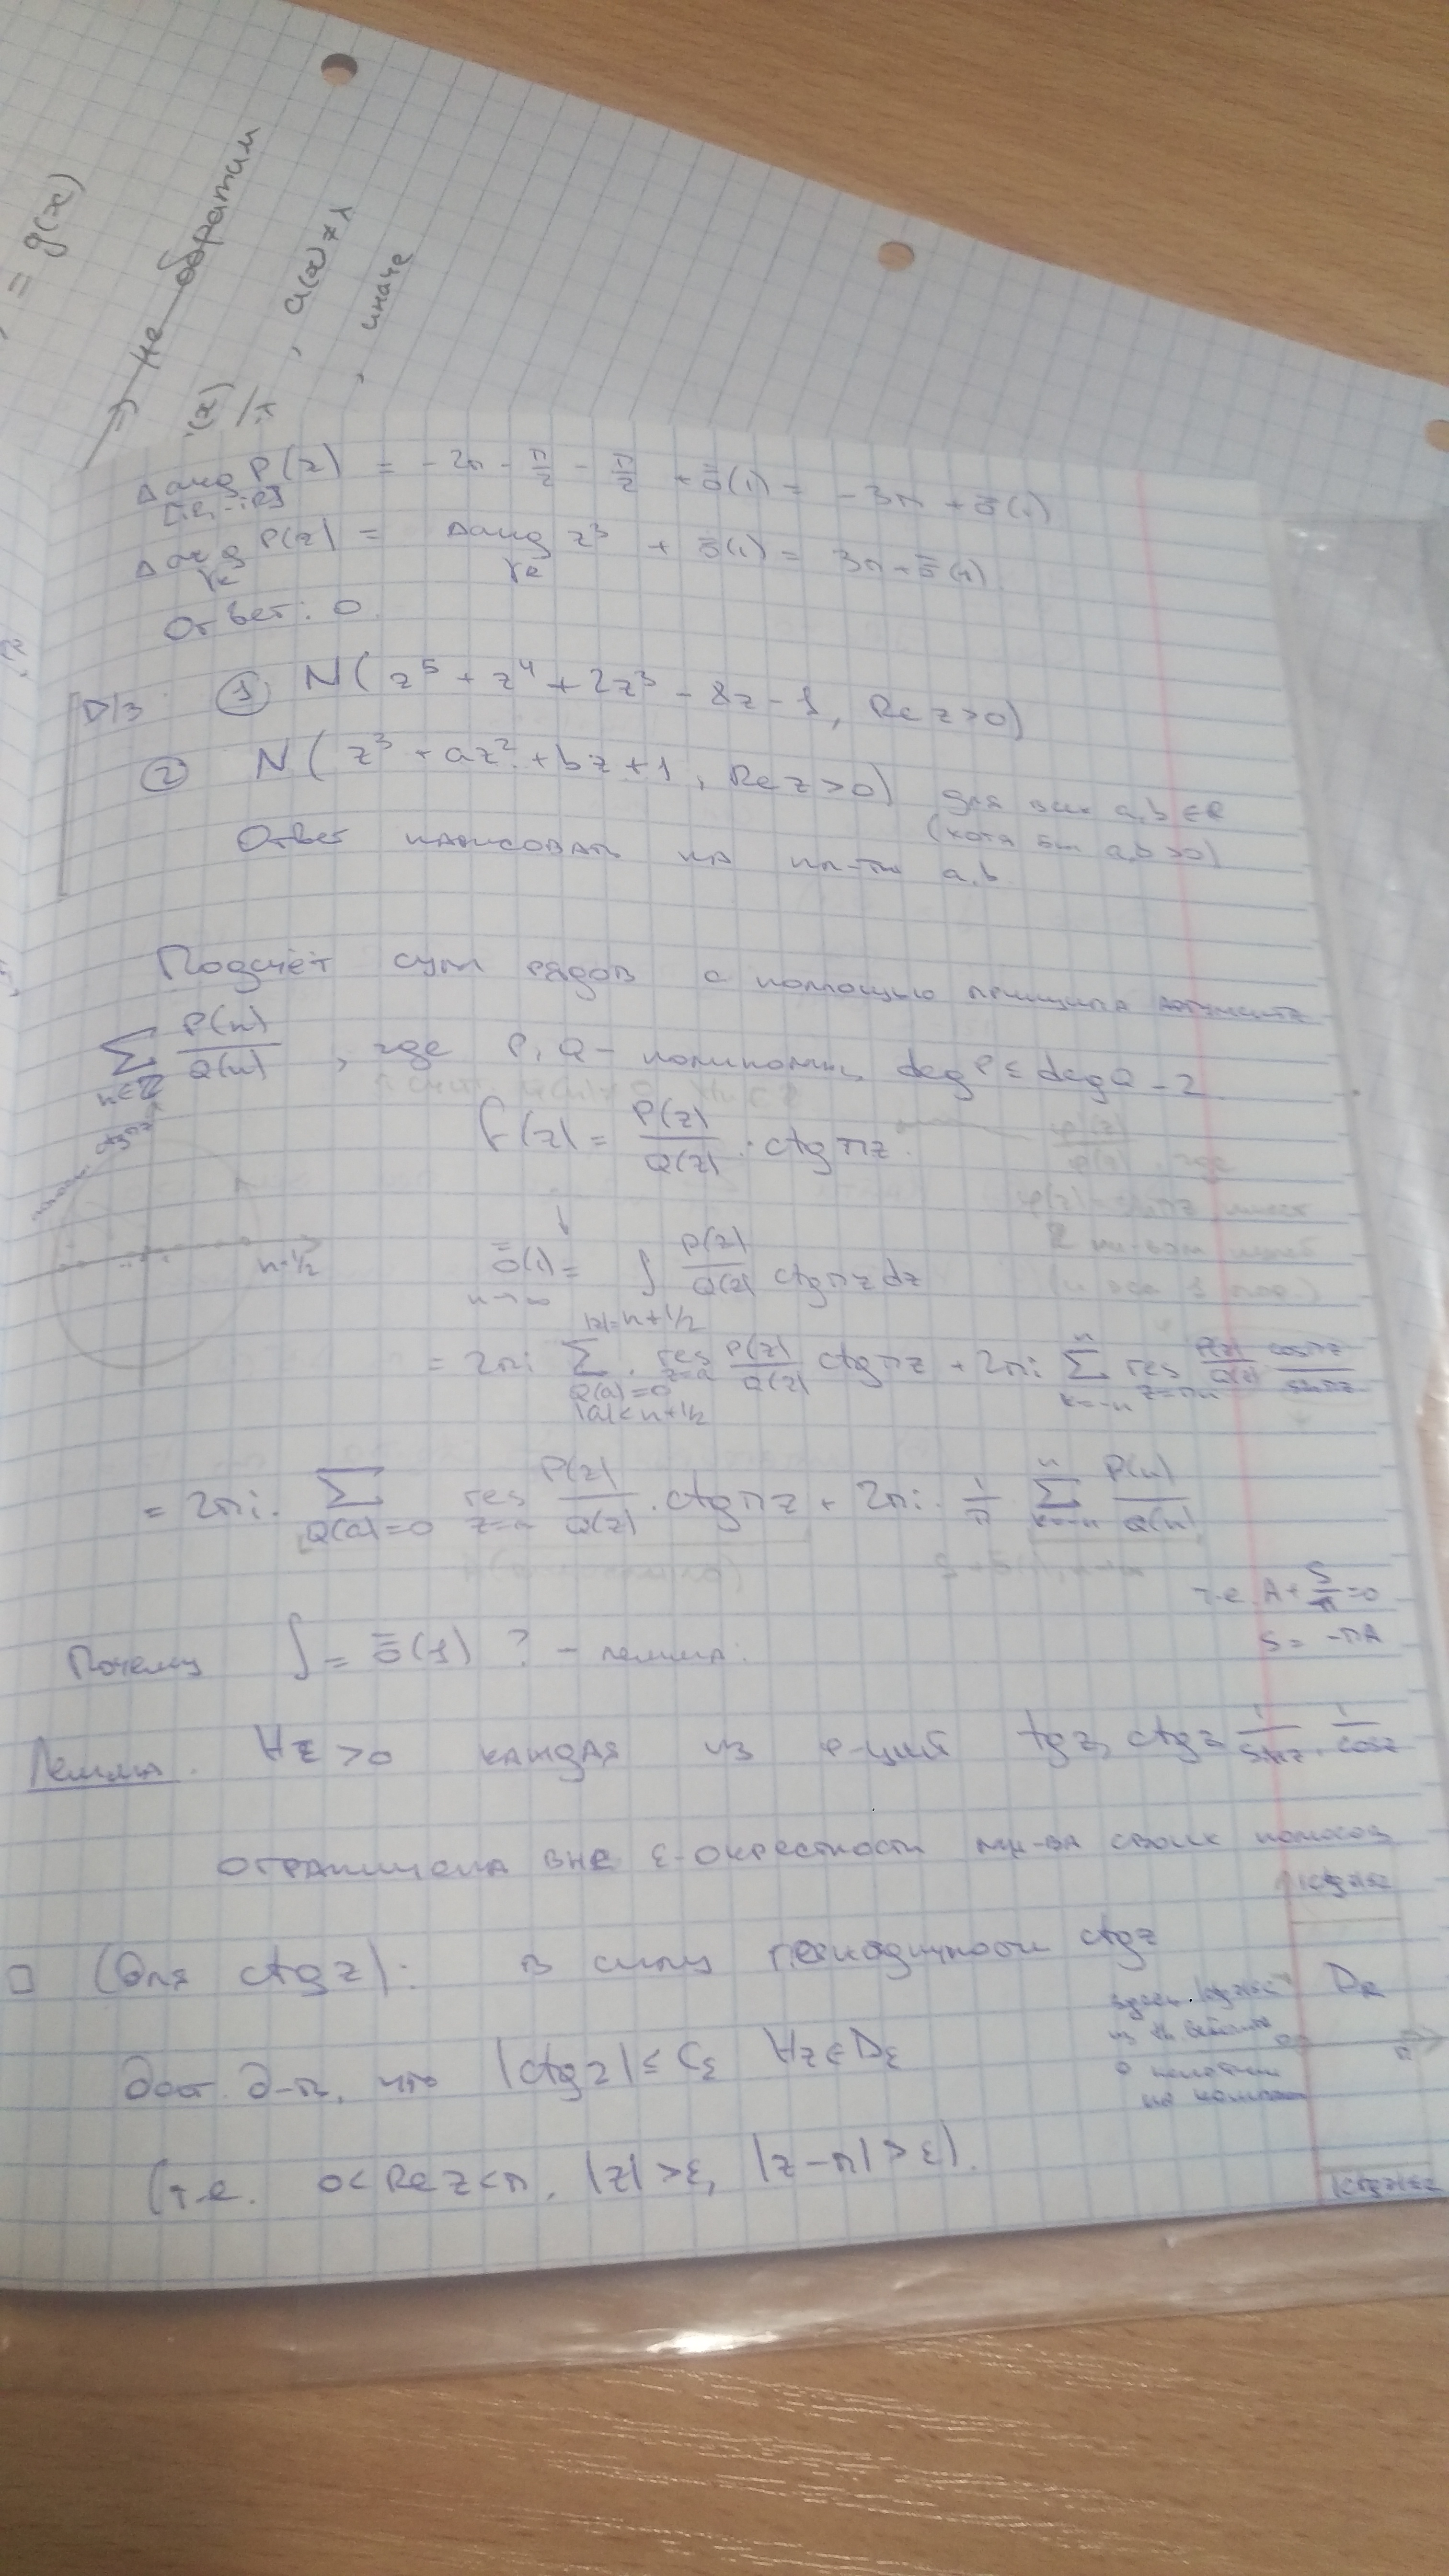 = g(x)
⇒ не обратим
, a(x) ≠ λ
, иначе
Δarg P(z) = -2π - π/2 - π/2 + ō(1) = -3π + ō(1)
[iR, -iR]
Δarg P(z) = Δarg z³ + ō(1) = 3π + ō(1)
γR γR
Ответ: 0.
D/з ① N(z⁵ + z⁴ + 2z³ - 8z - 1, Re z > 0)
② N(z³ + az² + bz + 1, Re z > 0) для всех a, b ∈ R
(хотя бы a, b > 0)
Ответ нарисовать на пл-ти a, b.
Подсчёт сумм рядов с помощью принципа аргумента
∑ n∈Z P(n)/Q(n), где P, Q - полиномы, deg P ≤ deg Q - 2
f(z) = P(z)/Q(z) · ctg πz.
n+1/2
ō(1) = ∫ P(z)/Q(z) ctg πz dz
n→∞ |z|=n+1/2
= 2πi ∑ res P(z)/Q(z) ctg πz + 2πi ∑ res P(z)/Q(z) cos πz/sin πz
Q(a)=0 z=a k=-n
|a|<n+1/2
= 2πi · ∑ Q(a)=0 res z=a P(z)/Q(z) · ctg πz + 2πi · 1/π ∑ k=-n n P(k)/Q(k)
т.е. A + S/π = 0
S = -πA
Почему ∫ = ō(1) ? - лемма.
Лемма. ∀ε > 0 каждая из ф-ций tg z, ctg z, 1/sin z, 1/cos z
ограничена вне ε-окрестности мн-ва своих полюсов
□ (Для ctg z): в силу периодичности ctg z
Dε
дост. д-ть, что |ctg z| ≤ Cε ∀z ∈ Dε
π
(т.е. 0 < Re z < π, |z| > ε, |z - π| > ε).